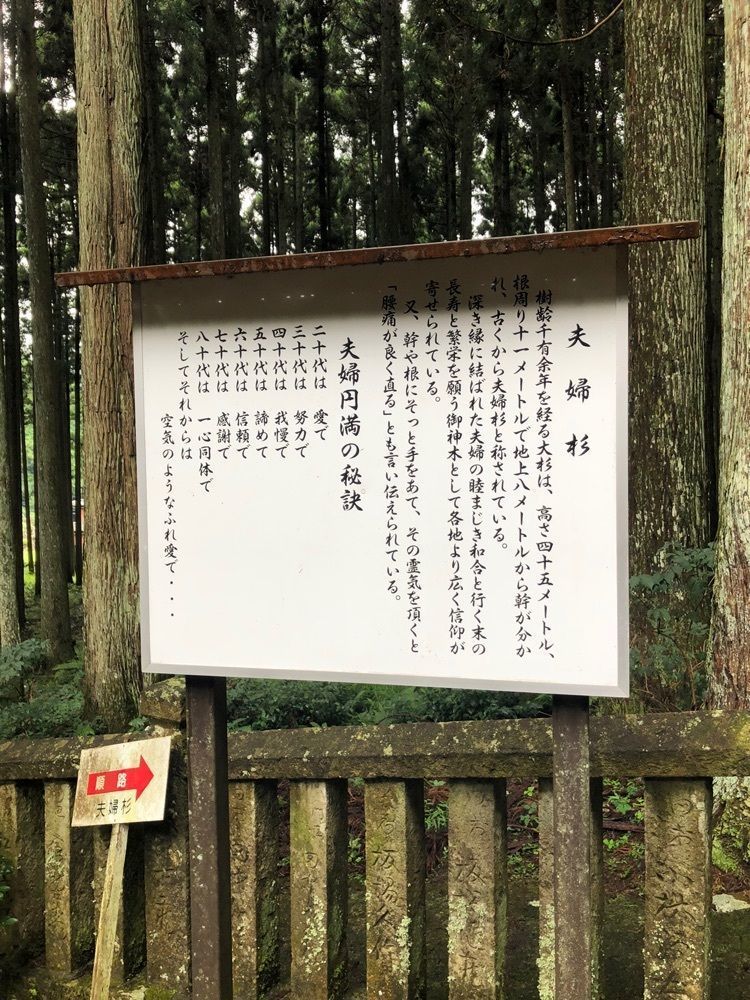 夫婦杉
樹齢千有余年を経る大杉は、高さ四十五メートル、
根周り十一メートルで地上八メートルから幹が分か
れ、古くから夫婦杉と称されている。
深き縁に結ばれた夫婦の睦まじき和合と行く末の
長寿と繁栄を願う御神木として各地より広く信仰が
寄せられている。
又、幹や根にそっと手をあて、その霊気を頂くと
「腰痛が良く直る」とも言い伝えられている。
夫婦円満の秘訣
二十代は 愛で
三十代は 努力で
四十代は 我慢で
五十代は 諦めて
六十代は 信頼で
七十代は 感謝で
八十代は 一心同体で
そしてそれからは
空気のようなふれ愛で・・・
順路
夫婦杉